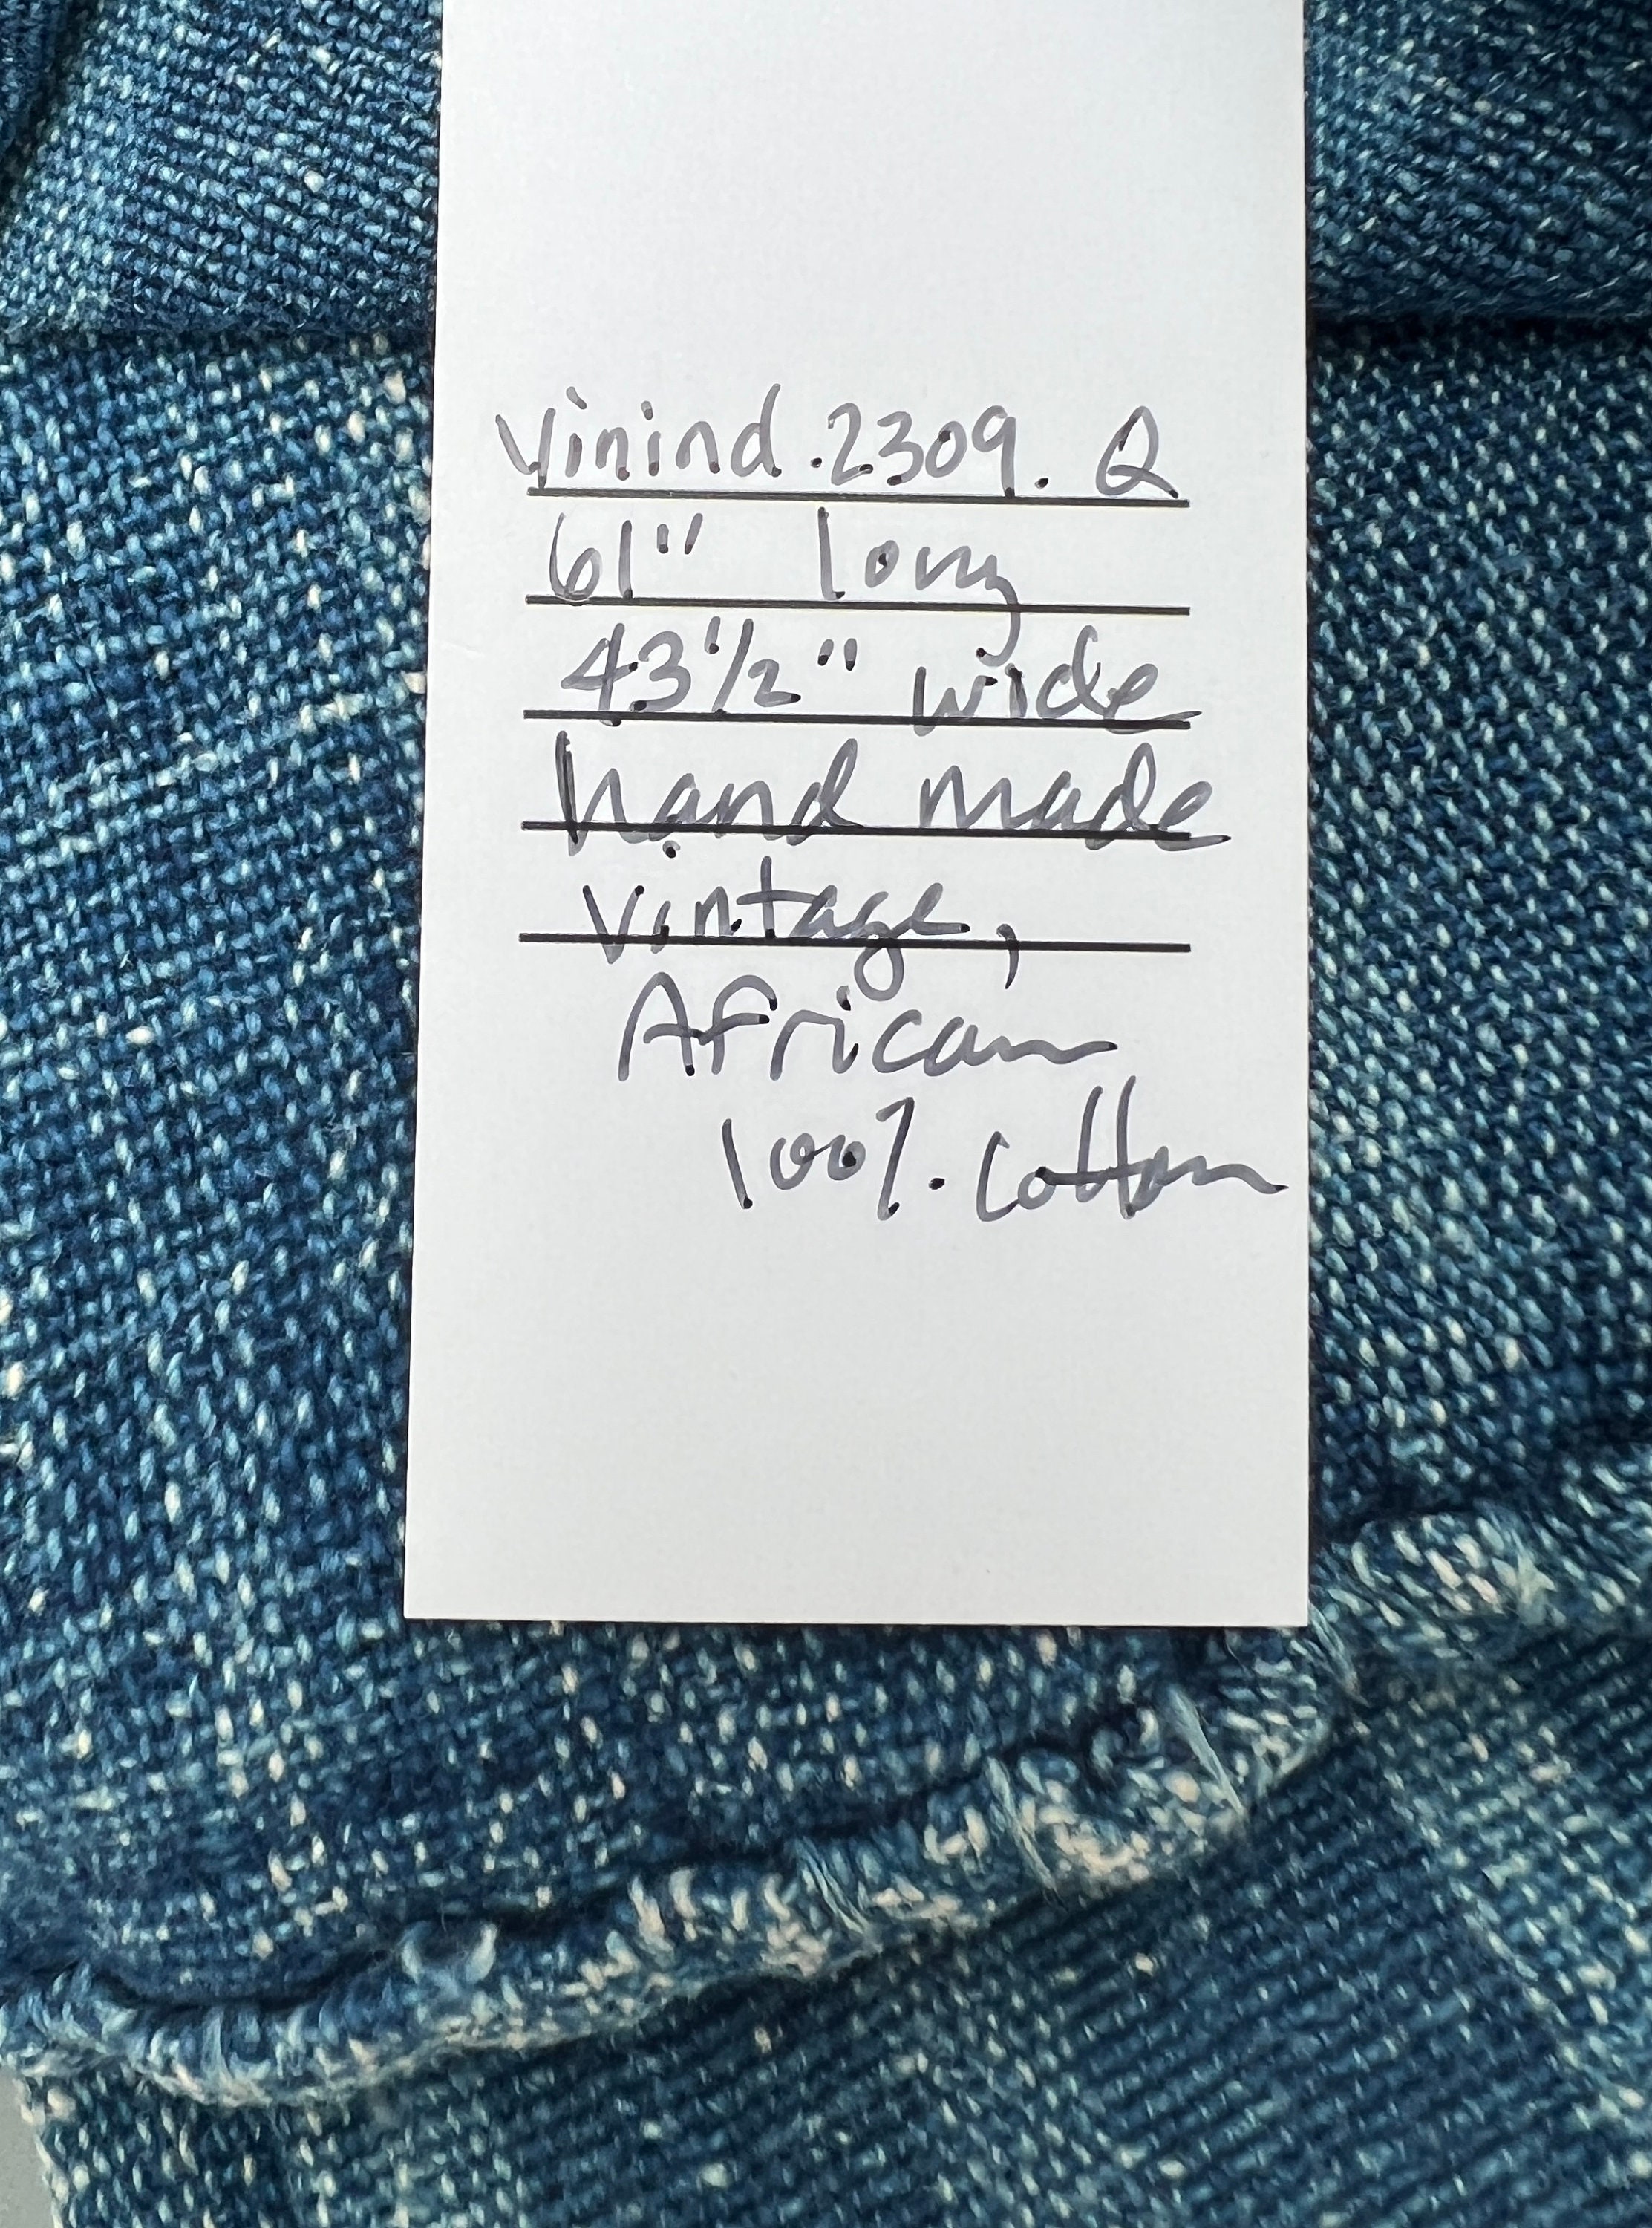 Vinind.2309.Q
61" long
43 1/2" wide
hand made
vintage,
African
100% cotton